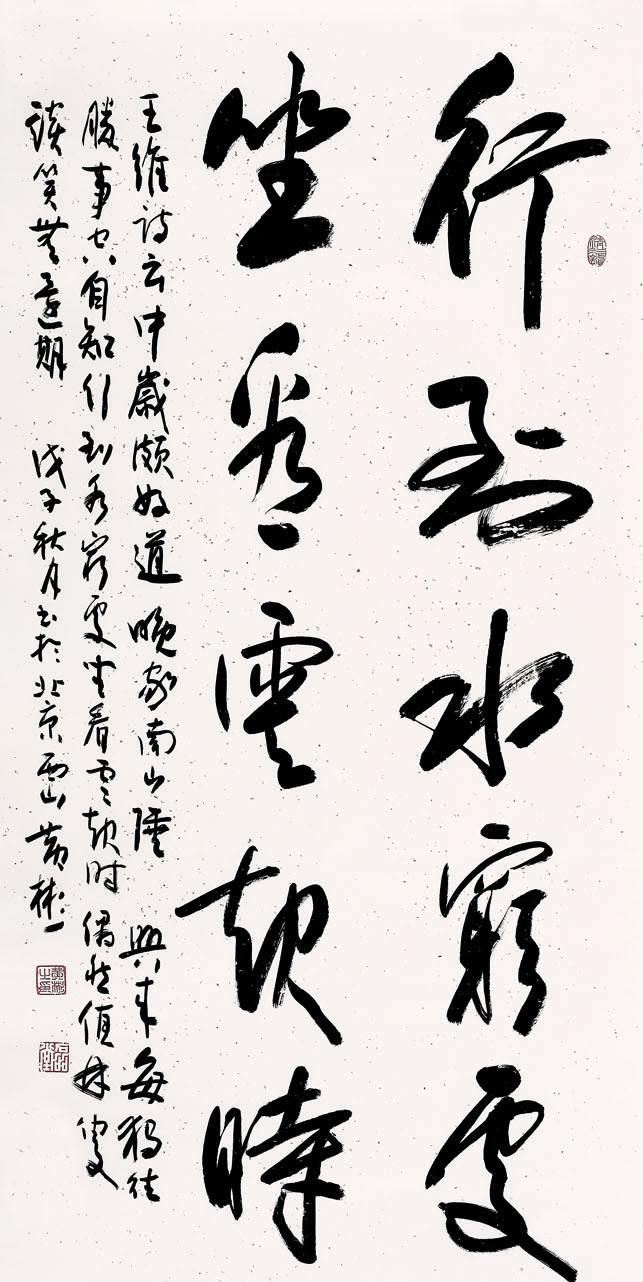 行到水窮處
坐看雲起時
王維詩云中歲頗好道晚家南山陲興來每獨往
勝事空自知行到水窮處坐看雲起時偶然值林叟
談笑無還期 戊子秋月書於北京西山黃彬
黃彬之印